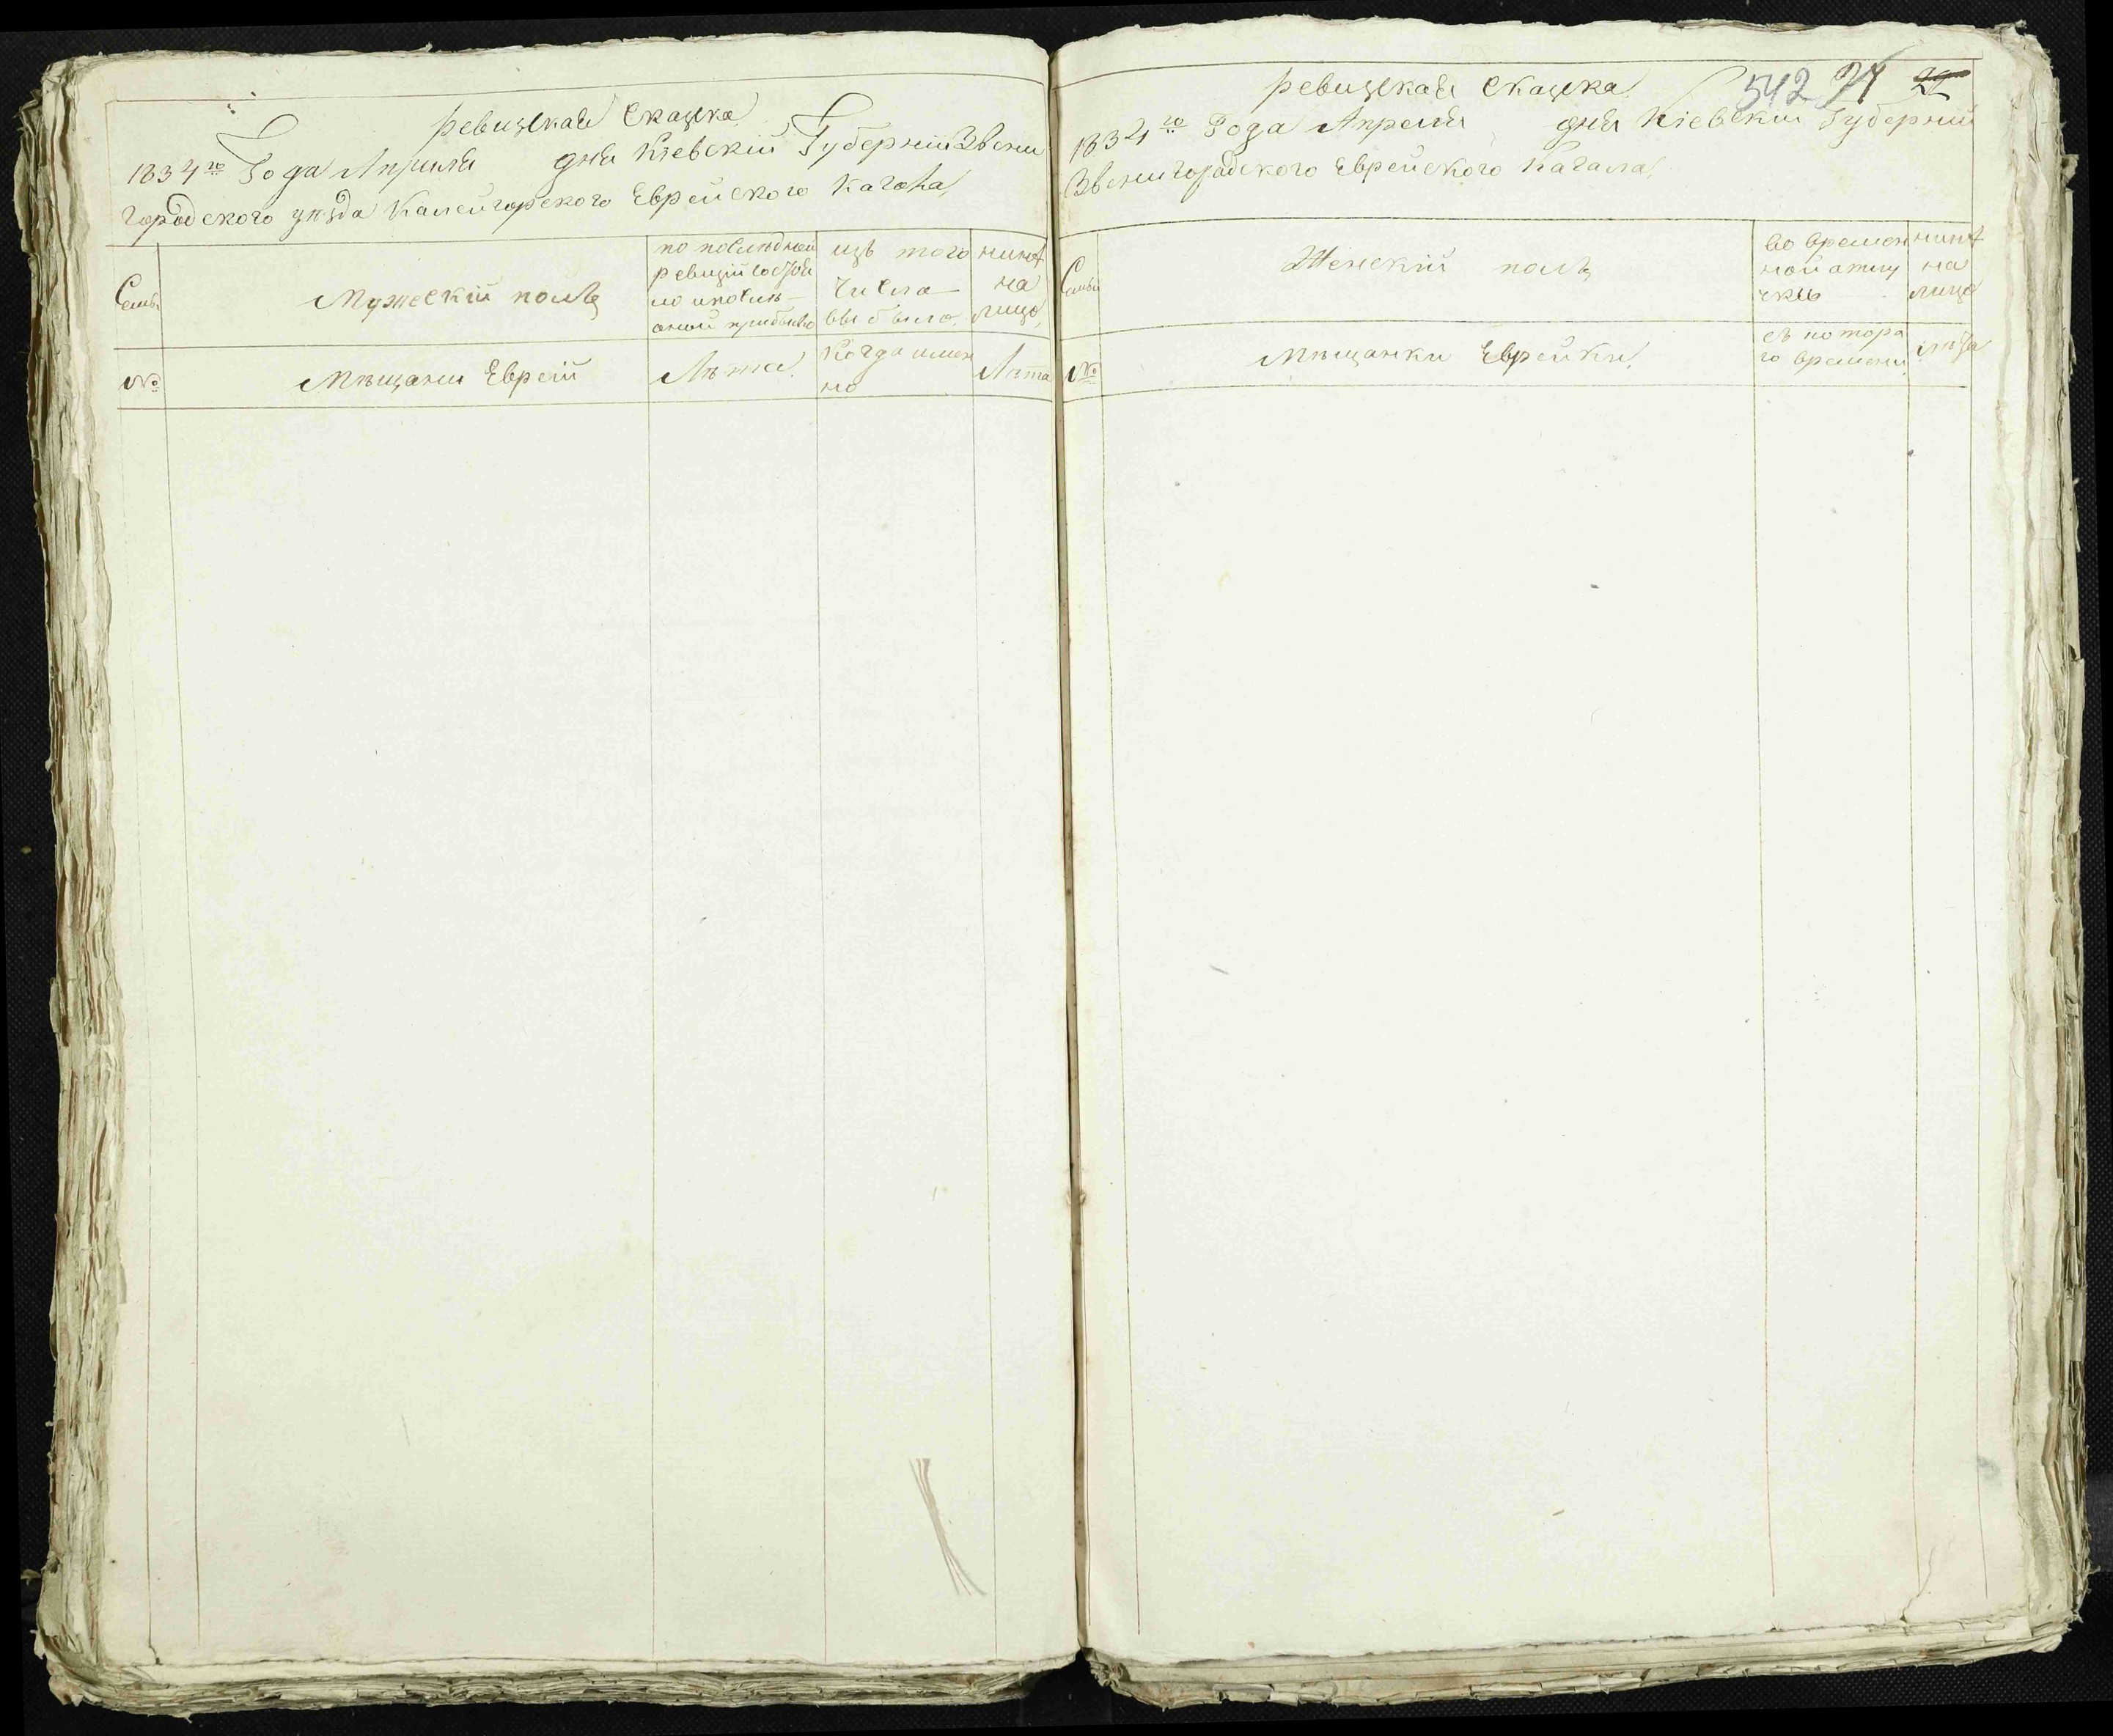 Ревизская Сказка
1834го Года Апреля дня Кіевскій Губерніи Звени
городского уезда Калейгорского Еврейского Кагала
Семьи
Мужескій полъ
по последней
ревизіи состоя
ло и после
оной прибыло
изъ того
числа
выбыло
ныне
на
лицо
№
Мещани Евреій
Лета
Когда имен
но
Лета
Ревизская Сказка
542 71 22
1834го Года Апреля дня Кіевскіи Губерніи
Звенигородского Еврейского Кагала
Семьи
Женскій полъ
во времен
ной отлу
чкы
ныне
на
лицо
№
Мещанки Еврейки
съ котора
го времени
лета